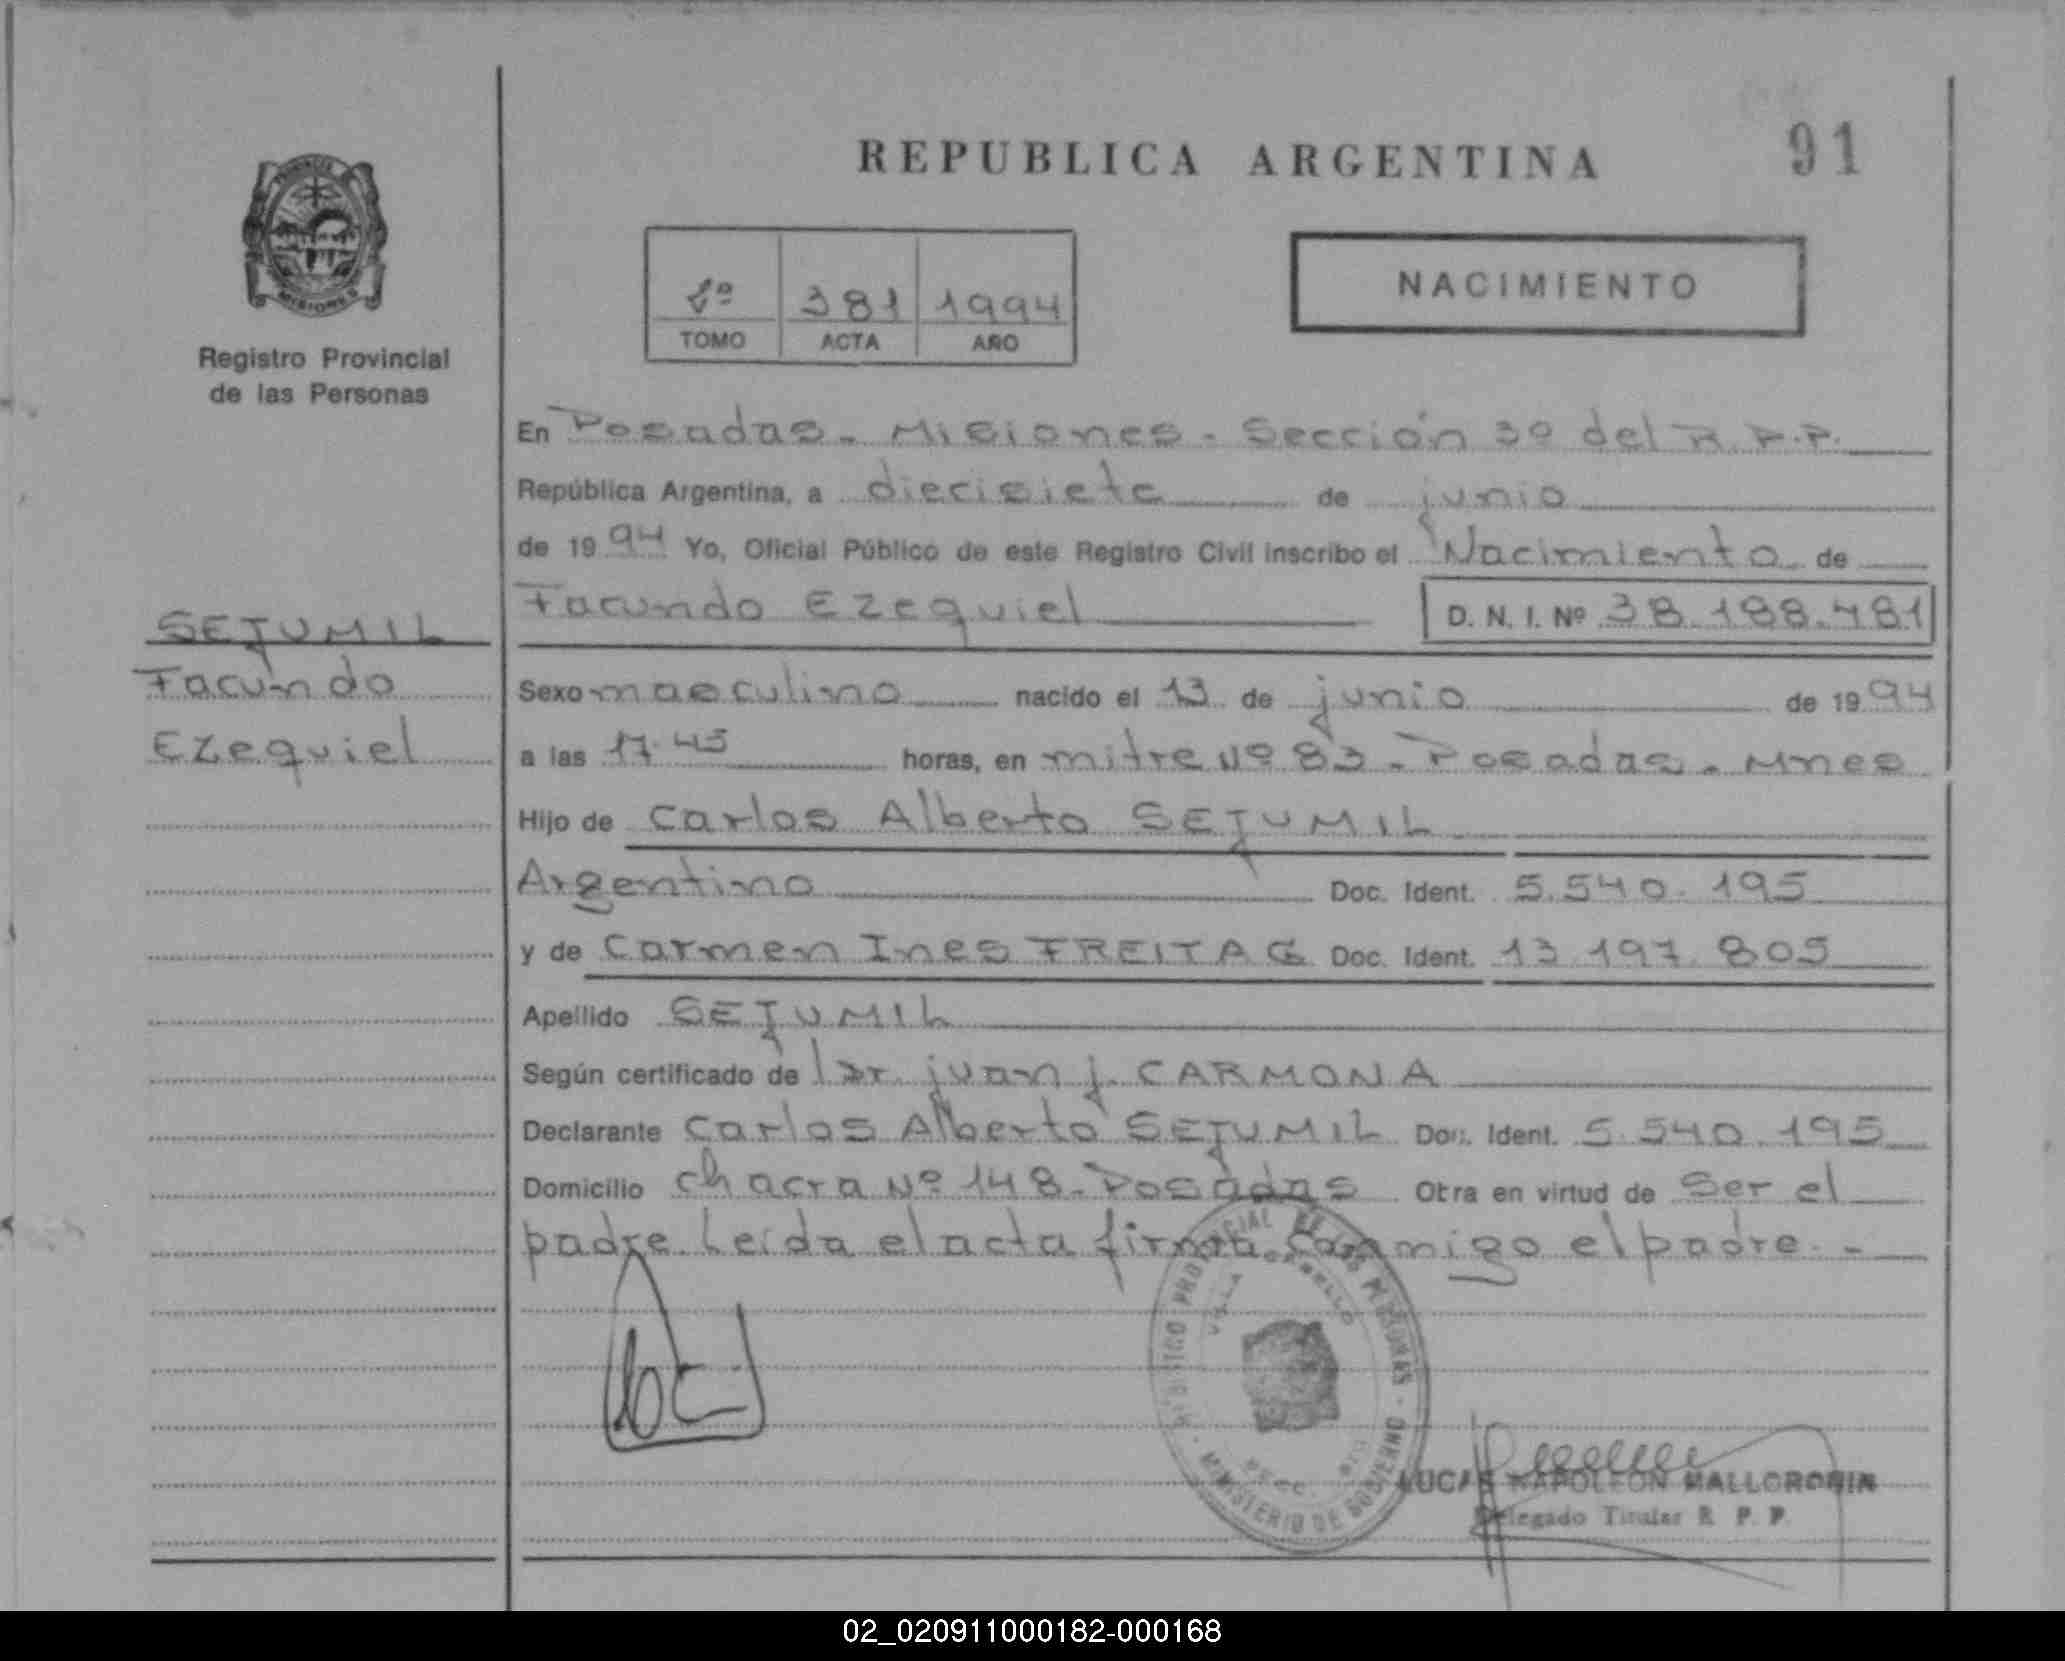 REPUBLICA ARGENTINA
91
PROVINCIA
MISIONES
Registro Provincial
de las Personas
1º 381 1994
TOMO ACTA AÑO
NACIMIENTO
En Posadas - Misiones - Sección 3º del R.P.P.
República Argentina, a diecisiete de junio
de 1994 Yo, Oficial Público de este Registro Civil inscribo el Nacimiento de
Facundo Ezequiel D. N. I. Nº 38.188.481
SEJUMIL
Facundo
Ezequiel
Sexo masculino nacido el 13 de junio de 1994
a las 17.45 horas, en mitre Nº 83 - Posadas - Mnes
Hijo de Carlos Alberto SEJUMIL
Argentino Doc. Ident. 5.540.195
y de Carmen Ines FREITAG Doc. Ident. 13.197.805
Apellido SEJUMIL
Según certificado de l Dr. juan j. CARMONA
Declarante Carlos Alberto SEJUMIL Doc. Ident. 5.540.195
Domicilio chacra Nº 148 - Posadas Otra en virtud de ser el
padre. Leída el acta firma conmigo el padre. -
REGISTRO PROVINCIAL DE LAS PERSONAS
MINISTERIO DE GOBIERNO
VILLA
LUCAS NAPOLEON MALLORQUIN
Delegado Titular R. P. P.
02_020911000182-000168